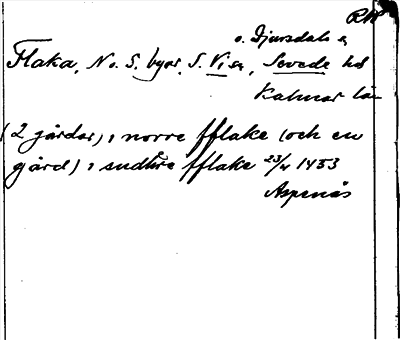 RA
o. Djursdals sn
Flaka, N. o. S. byar, S. Vi sn, Sevede hd
Kalmar län
(2 gårdar) i norre fflake (och en
gård) i sudhre fflake 23/4 1453
Aspenäs